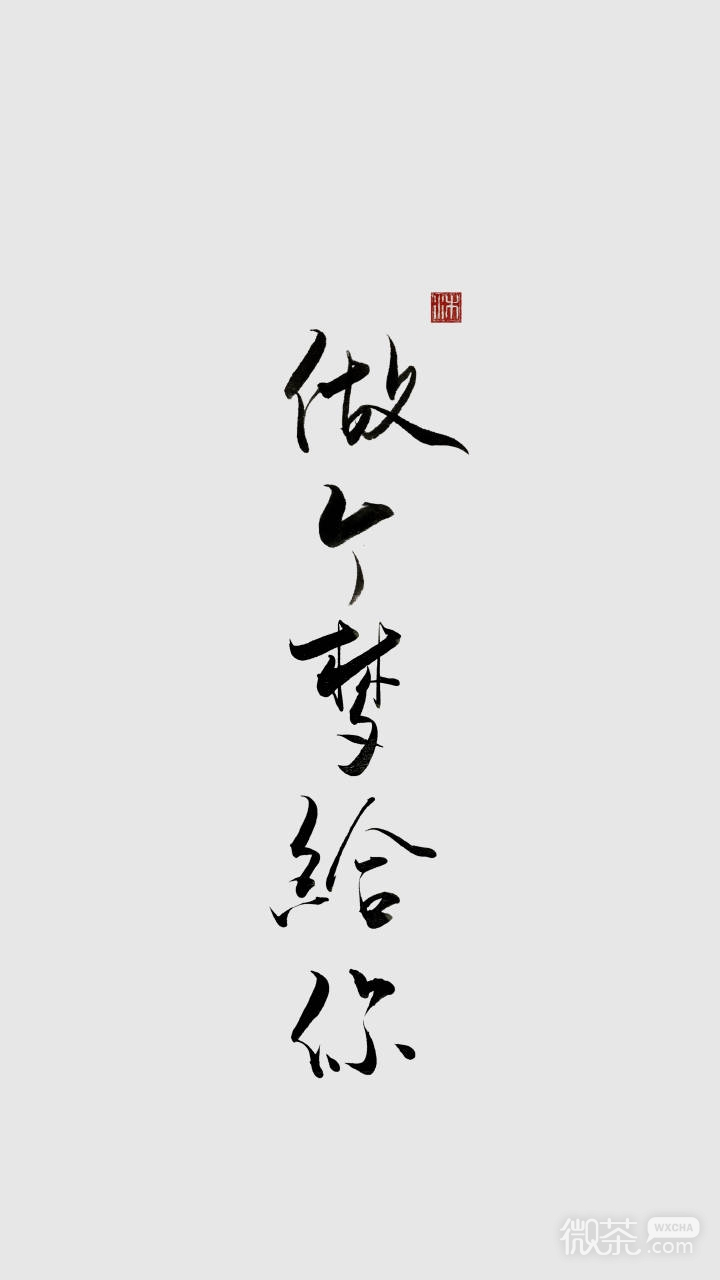 做个梦给你
微茶 WXCHA
.com